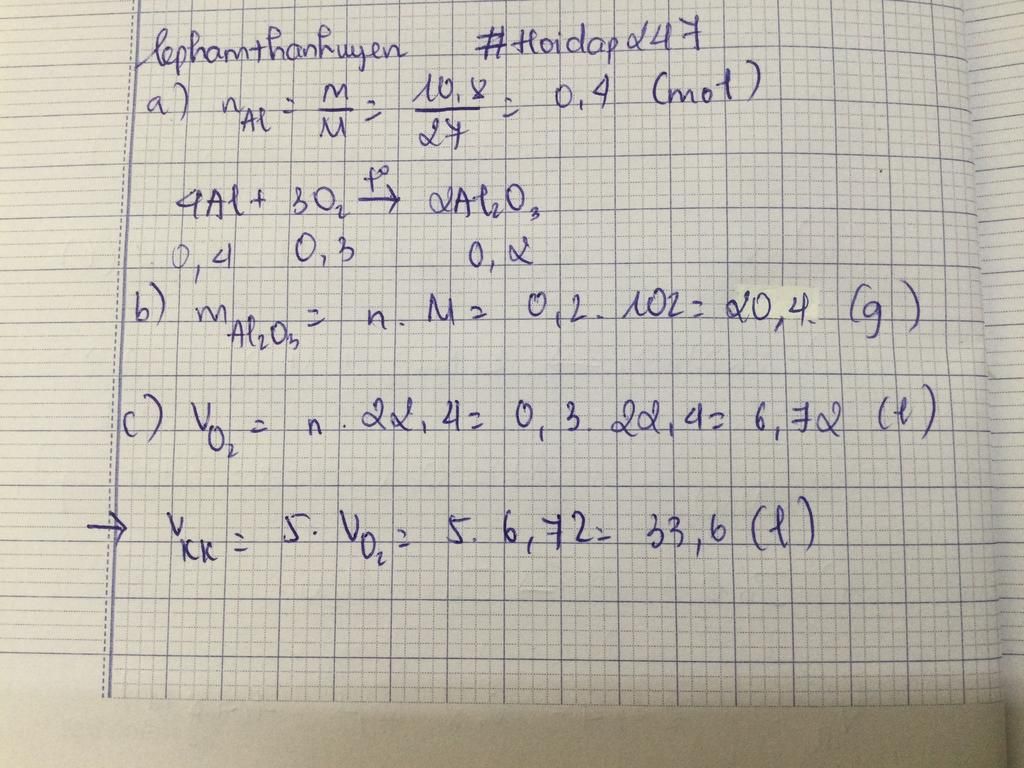 lephamthanhuyen #Hoidap247
a) n_Al = m/M = 10,8/27 = 0,4 (mol)
4Al + 3O₂ t°→ 2Al₂O₃
0,4 0,3 0,2
b) m_Al₂O₃ = n. M = 0,2. 102 = 20,4. (g)
c) V_O₂ = n. 22,4 = 0,3. 22,4 = 6,72 (l)
→ V_KK = 5. V_O₂ = 5. 6,72 = 33,6 (l)